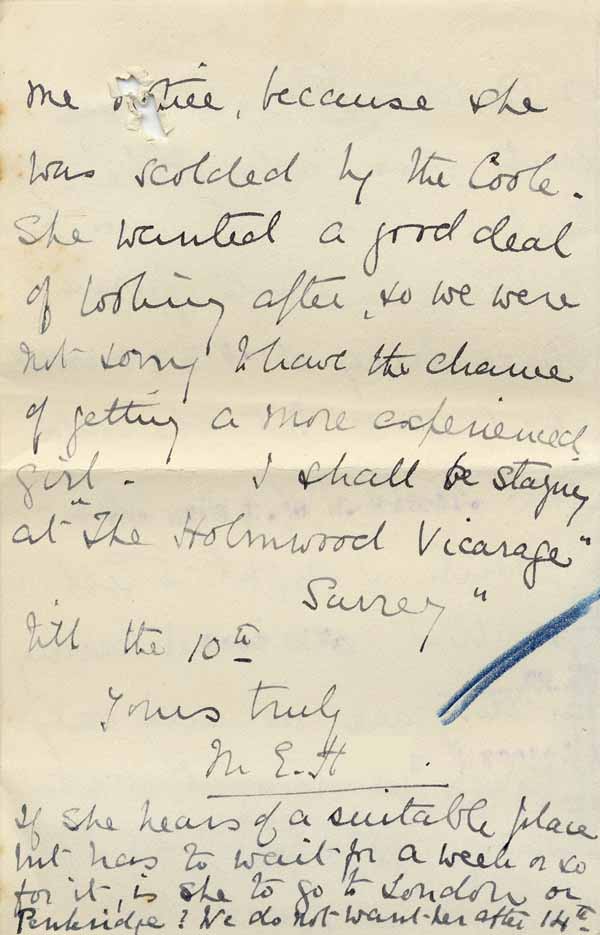 me notice, because she
was scolded by the Cook.
She wanted a good deal
of looking after, so we were
not sorry to have the chance
of getting a more experienced
girl. I shall be staying
at "The Holmwood Vicarage"
Surrey"
till the 10th
Yours truly
M E. H
If she hears of a suitable place
but has to wait for a week or so
for it, is she to go to London or
Penkridge? We do not want her after 14th